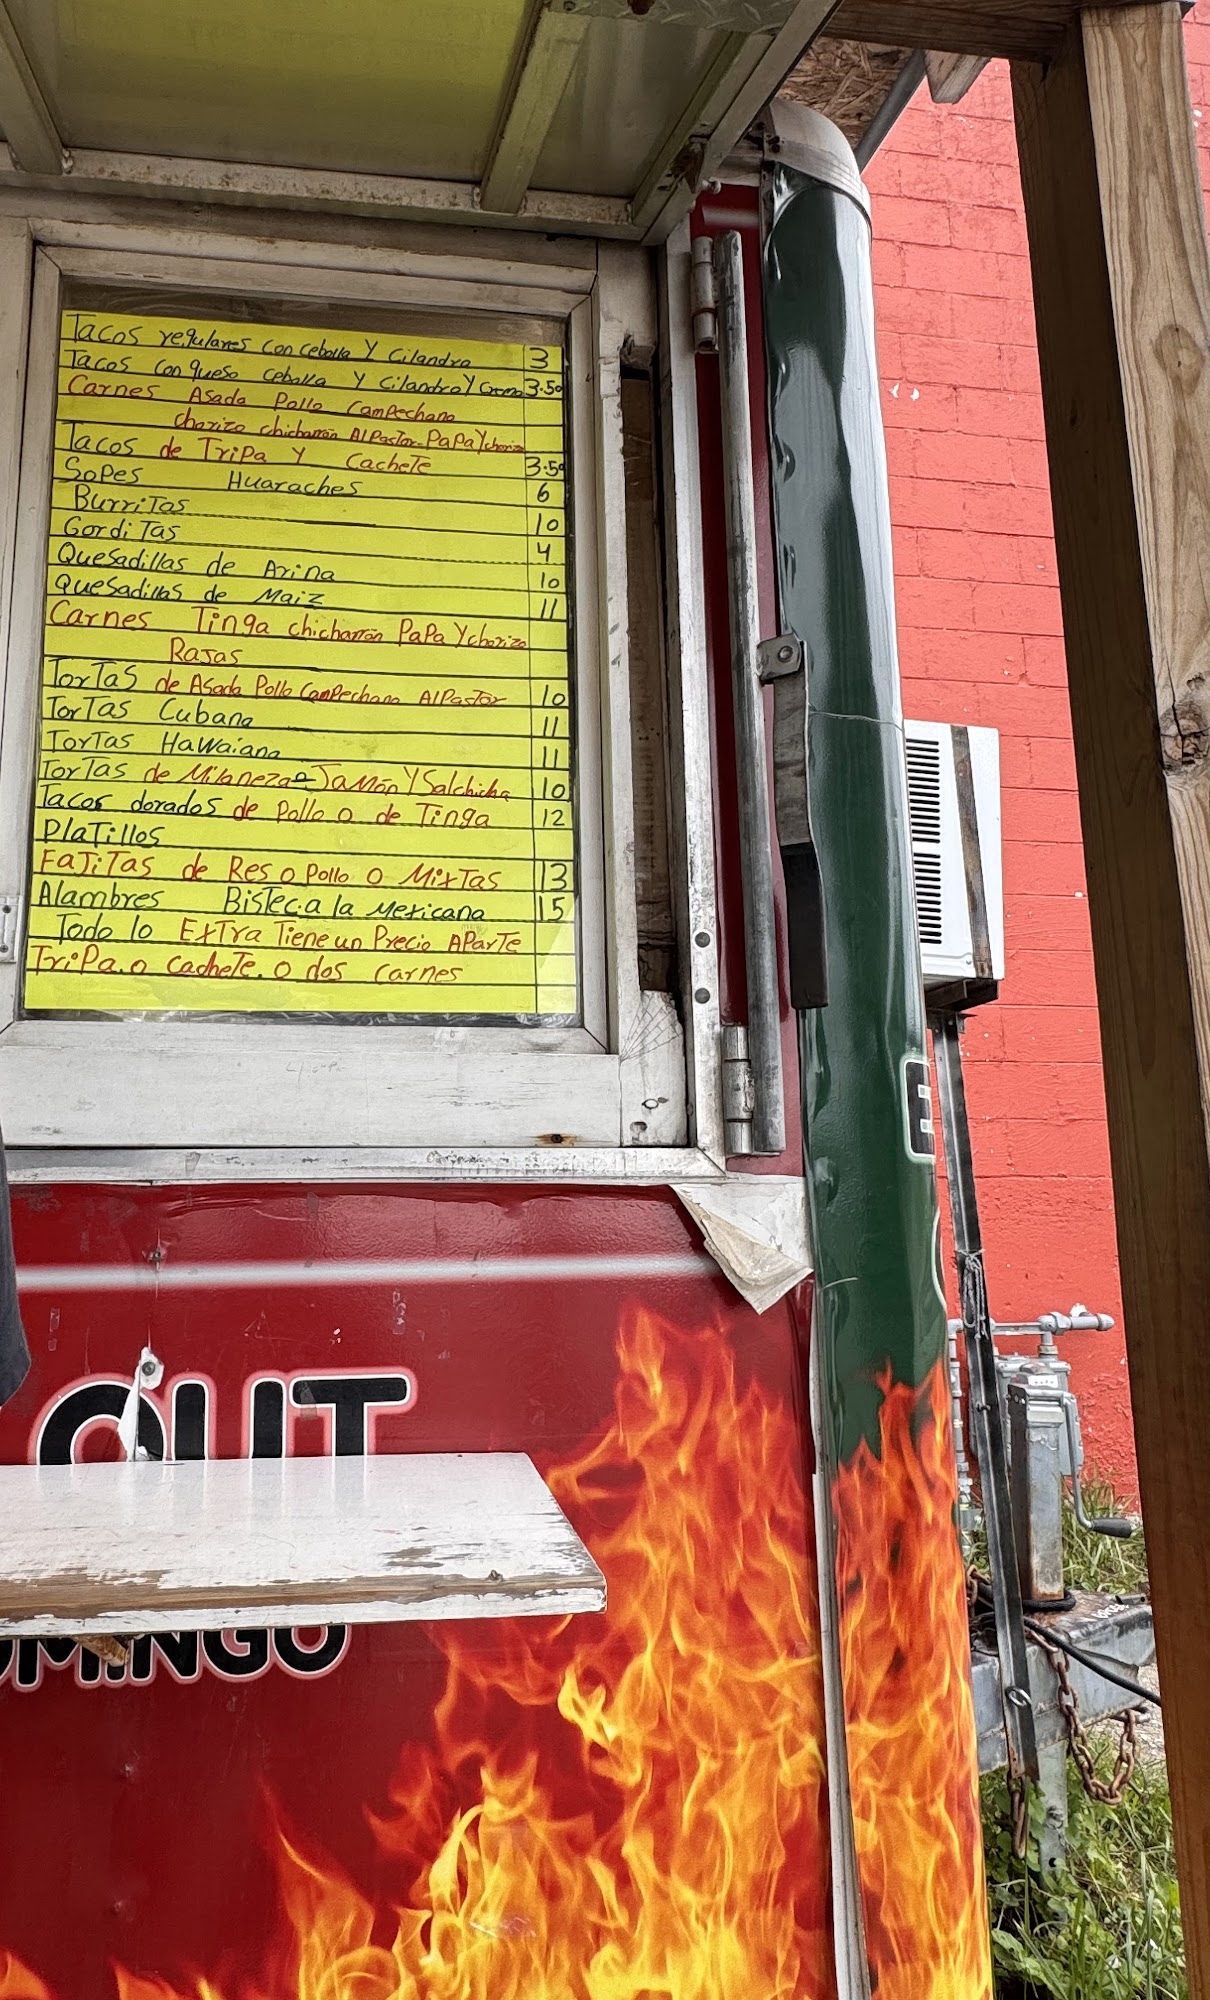 Tacos regulares con cebolla Y Cilandro 3
Tacos con queso cebolla Y Cilandro Y Crema 3.50
Carnes Asada Pollo Campechano
chorizo chicharrón AlPastor-PaPa Y chorizo
Tacos de TriPa Y CacheTe 3.50
Sopes Huaraches 6
BurriTos 10
GordiTas 4
Quesadillas de Arina 10
Quesadillas de Maiz 11
Carnes Tinga chicharrón PaPa Y chorizo
Rajas
TorTas de Asada Pollo CamPechano AlPastor 10
TorTas Cubana 11
TorTas Hawaiana 11
TorTas de Milaneza o Jamón Y Salchicha 10
Tacos dorados de Pollo o de Tinga 12
PlaTillos
FaJiTas de Res o Pollo o MixTas 13
Alambres BisTec.a la Mexicana 15
Todo lo ExTra Tiene un Precio AParTe
TriPa.o CacheTe.o dos Carnes
E
OUT
OMINGO